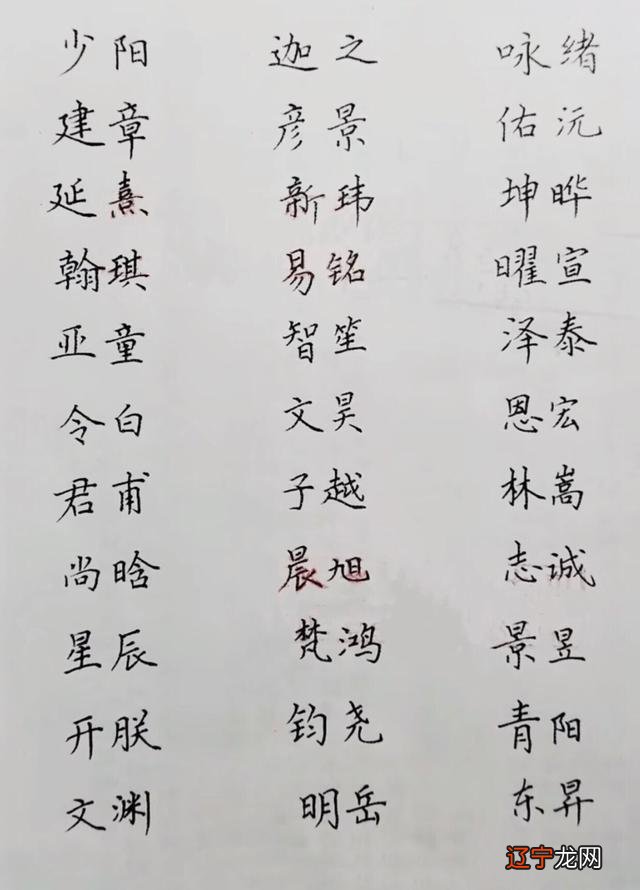 少阳 迦之 咏绪
建章 彦景 佑沅
延熹 新玮 坤晔
翰琪 易铭 曜宣
亚童 智笙 泽泰
令白 文昊 恩宏
君甫 子越 林嵩
尚晗 晨旭 志诚
星辰 梵鸿 景昱
开朕 钧尧 青阳
文渊 明岳 东昇
辽宁龙网